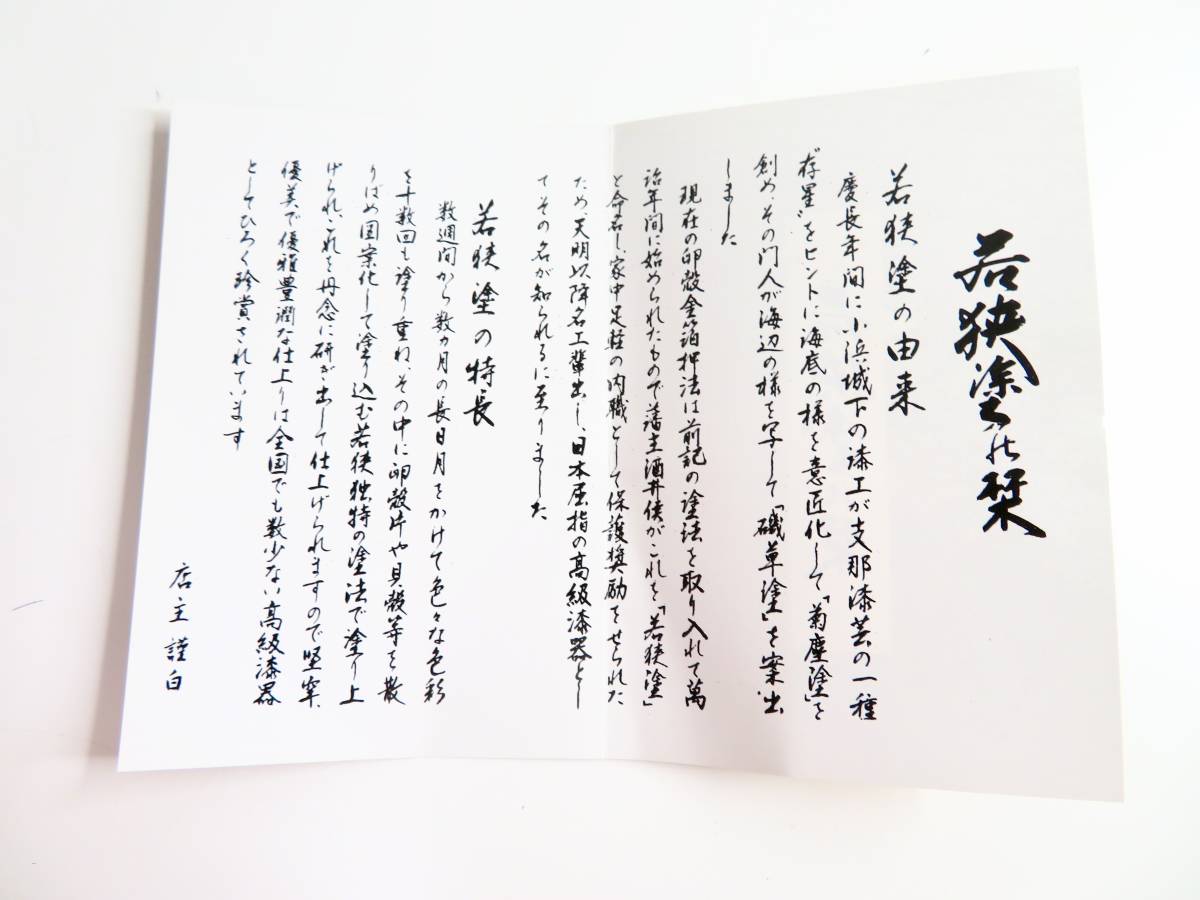 若狭塗の栞
若狭塗の由来
慶長年間に小浜城下の漆工が支那漆芸の一種
〝存星〟をヒントに海底の様を意匠化して「菊塵塗」を
創め、その門人が海辺の様を写して「磯草塗」を案出
しました
現在の卵殻金箔押法は前記の塗法を取り入れて萬
治年間に始められたもので藩主酒井侯がこれを「若狭塗」
と命名し、家中足軽の内職として保護奨励をせられた
ため、天明以降名工輩出し、日本屈指の高級漆器とし
てその名が知られるに至りました
若狭塗の特長
数週間から数ヵ月の長日月をかけて色々な色彩
を十数回も塗り重ね、その中に卵殻片や貝殻等を散
りばめ図案化して塗り込む若狭独特の塗法で塗り上
げられ、これを丹念に研ぎ出して仕上げられますので堅牢、
優美で優雅豊潤な仕上りは全国でも数少ない高級漆器
としてひろく珍賞されています
店主謹白